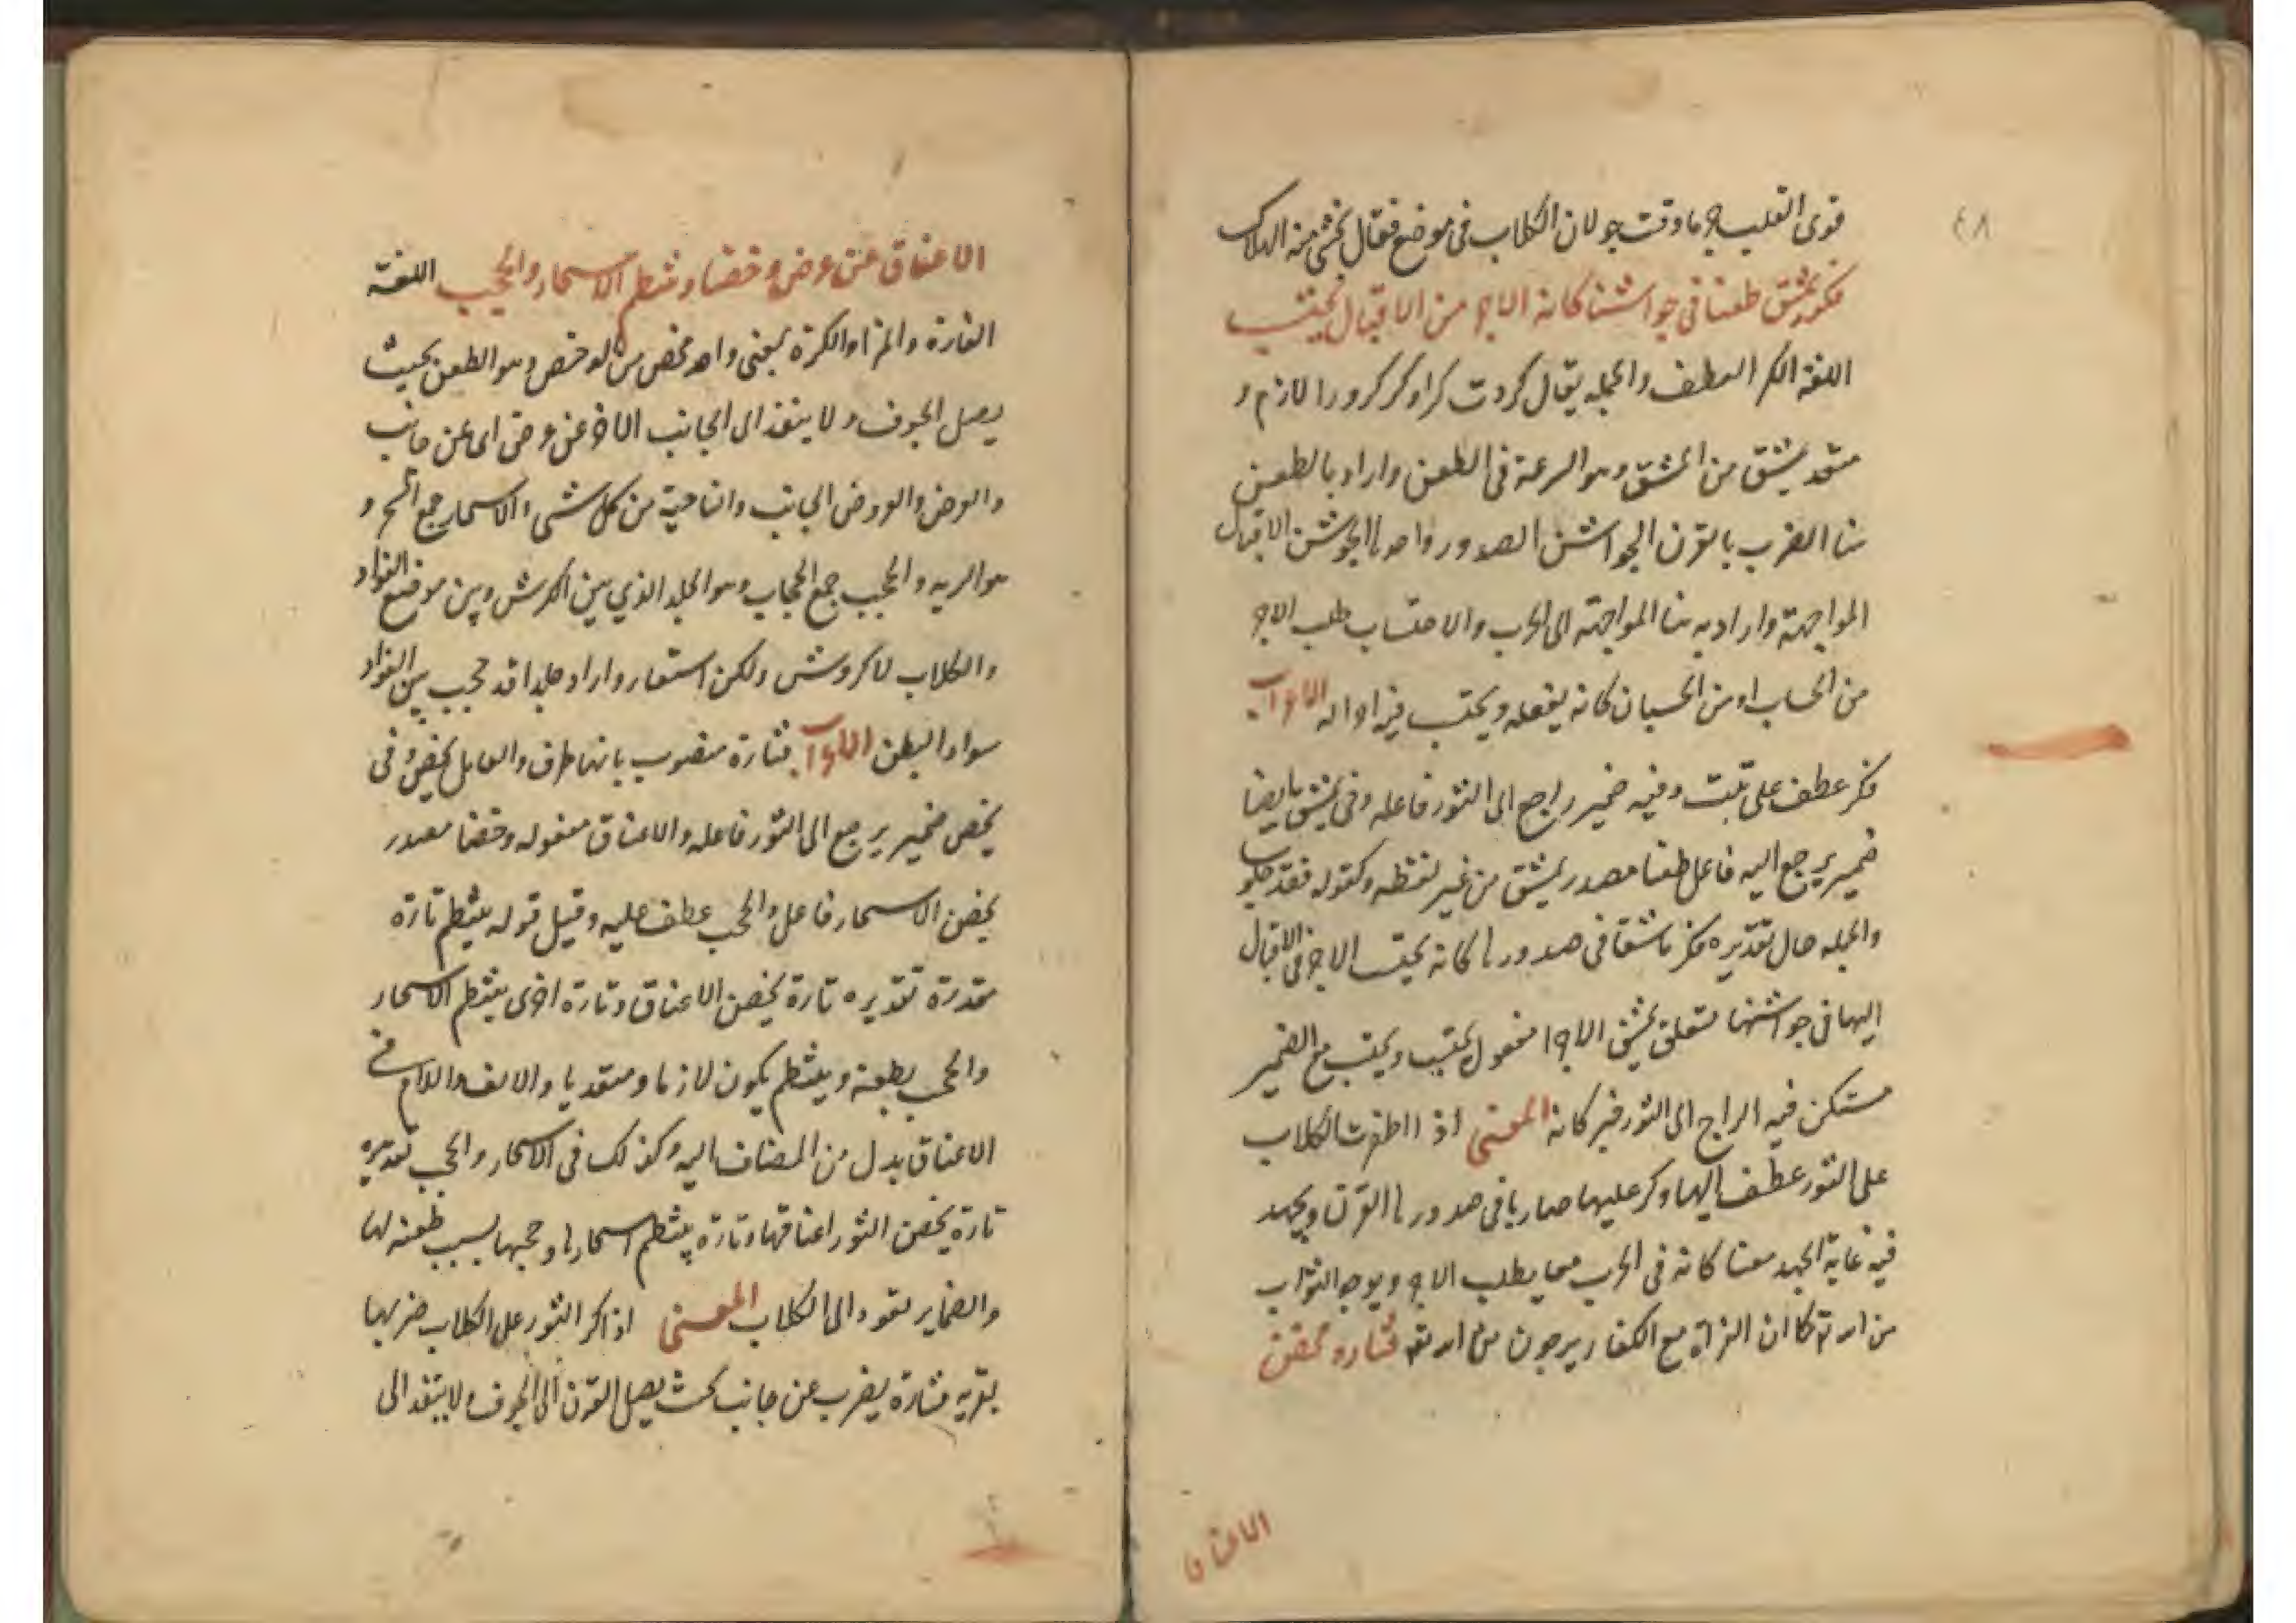 ٤٨
قوى القلب وقت جولان الكلاب فى موضع فقال يخشى منه الهلاك
فكر يمشق طعنا فى جواشنها كانه الاجر من الاقبال يحتسب
اللغة الكر العطف والحمله يقال كررت كرا وكر كرورا لازم و
متعد يمشق من المشق وهو السرعة فى الطعن واراد بالطعن
هنا الضرب بالقرن الجواشن الصدور واحدها الجوشن الاقبال
المواجهة واراد به هنا المواجهة الى الحرب والاحتساب طلب الاجر
من الحساب او من الحسبان كانه يفعله ويحتسب الاعراب
فكر عطف على ثبت وفيه ضمير راجع الى الثور فاعله وفى يمشق ايضا
ضمير يرجع اليه فاعل طعنا مصدر يمشق من غير لفظه وكقوله فقد
والجمله حال تقديره فكر ماشقا فى صدورها كانه يحتسب الاجر فى الاقبال
اليها فى جواشنها متعلق يمشق الاجر مفعول يحتسب ويحتسب مع الضمير
مستكن فيه الراجع الى الثور خبر كانه المعنى اذا الكلاب
على الثور عطف اليها وكر عليها ضاربا فى صدورها القرن ويجهد
فيه غاية الجهد كانه فى الحرب يطلب الاجر الثواب
من الله كما ان الغزاة مع الكفار يرجون من الله فتارة يخض
الاعناق
الاعناق عن عرض وخضا وتنتظم الاسحار والحجب اللغة
التارة والمرة والكرة بمعنى واحد يخض من الوخض وهو الطعن بحيث
يصل الجوف ولا ينفذ الى الجانب الاخر عن عرض اى عن جانب
والعرض والعروض الجانب والناحية من كل شى والاسحار جمع السحر و
هو الريه والحجب جمع الحجاب وهو الجلد الذي بين الكرش وبين موضع الفواد
والكلاب لا كروش ولكن استعار واراد جلدا قد حجب بين الفواد
سواد البطن الاعراب فتارة منصوب بانها ظرف والعامل يخض وفى
يخض ضمير يرجع الى الثور فاعله والاعناق مفعوله وخضا مصدر
يخض الاسحار فاعل والحجب عطف عليه وقيل قوله ينتظم تارة
مقدرة تقديره تارة يخض الاعناق وتارة اخرى ينتظم الاسحار
والحجب بطعنه وينتظم يكون لازما ومتعديا والالف واللام فى
الاعناق بدل من المضاف اليه وكذلك فى الاسحار والحجب تقديره
تارة يخض الثور اعناقها وتارة ينتظم اسحارها وحجبها بسبب طعنه لها
والضماير تعود الى الكلاب المعنى اذا كر الثور على الكلاب ضربها
بقرنه فتارة يضرب عن جانب بحيث يصل القرن الى الجوف ولا ينفذ الى